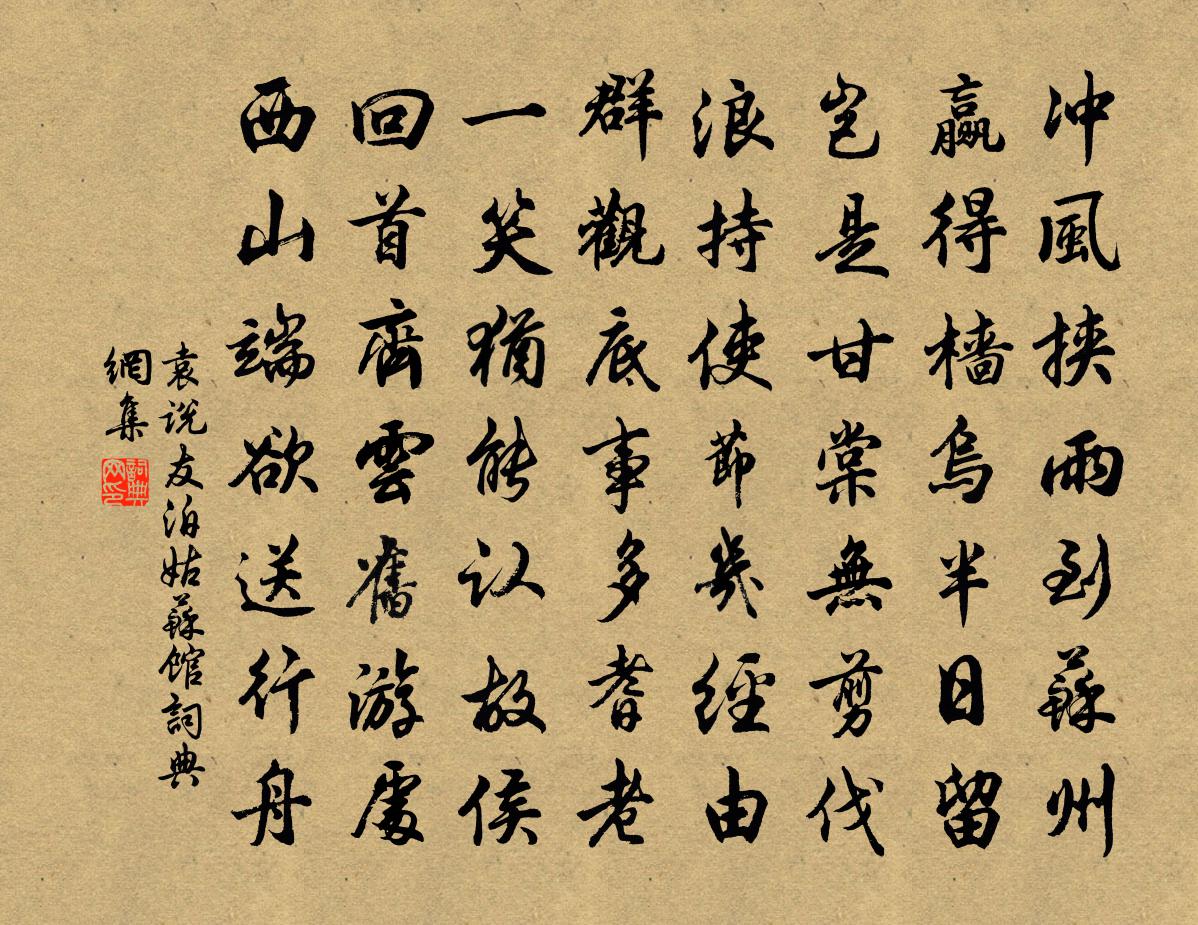 冲風挾雨到蘇州
贏得檣烏半日留
豈是甘棠無剪伐
浪持使節幾經由
群觀底事多耆老
一笑猶能认故侯
回首齊雲舊游處
西山端欲送行舟
袁说友泊姑蘇館詞典
網集
詞典網印